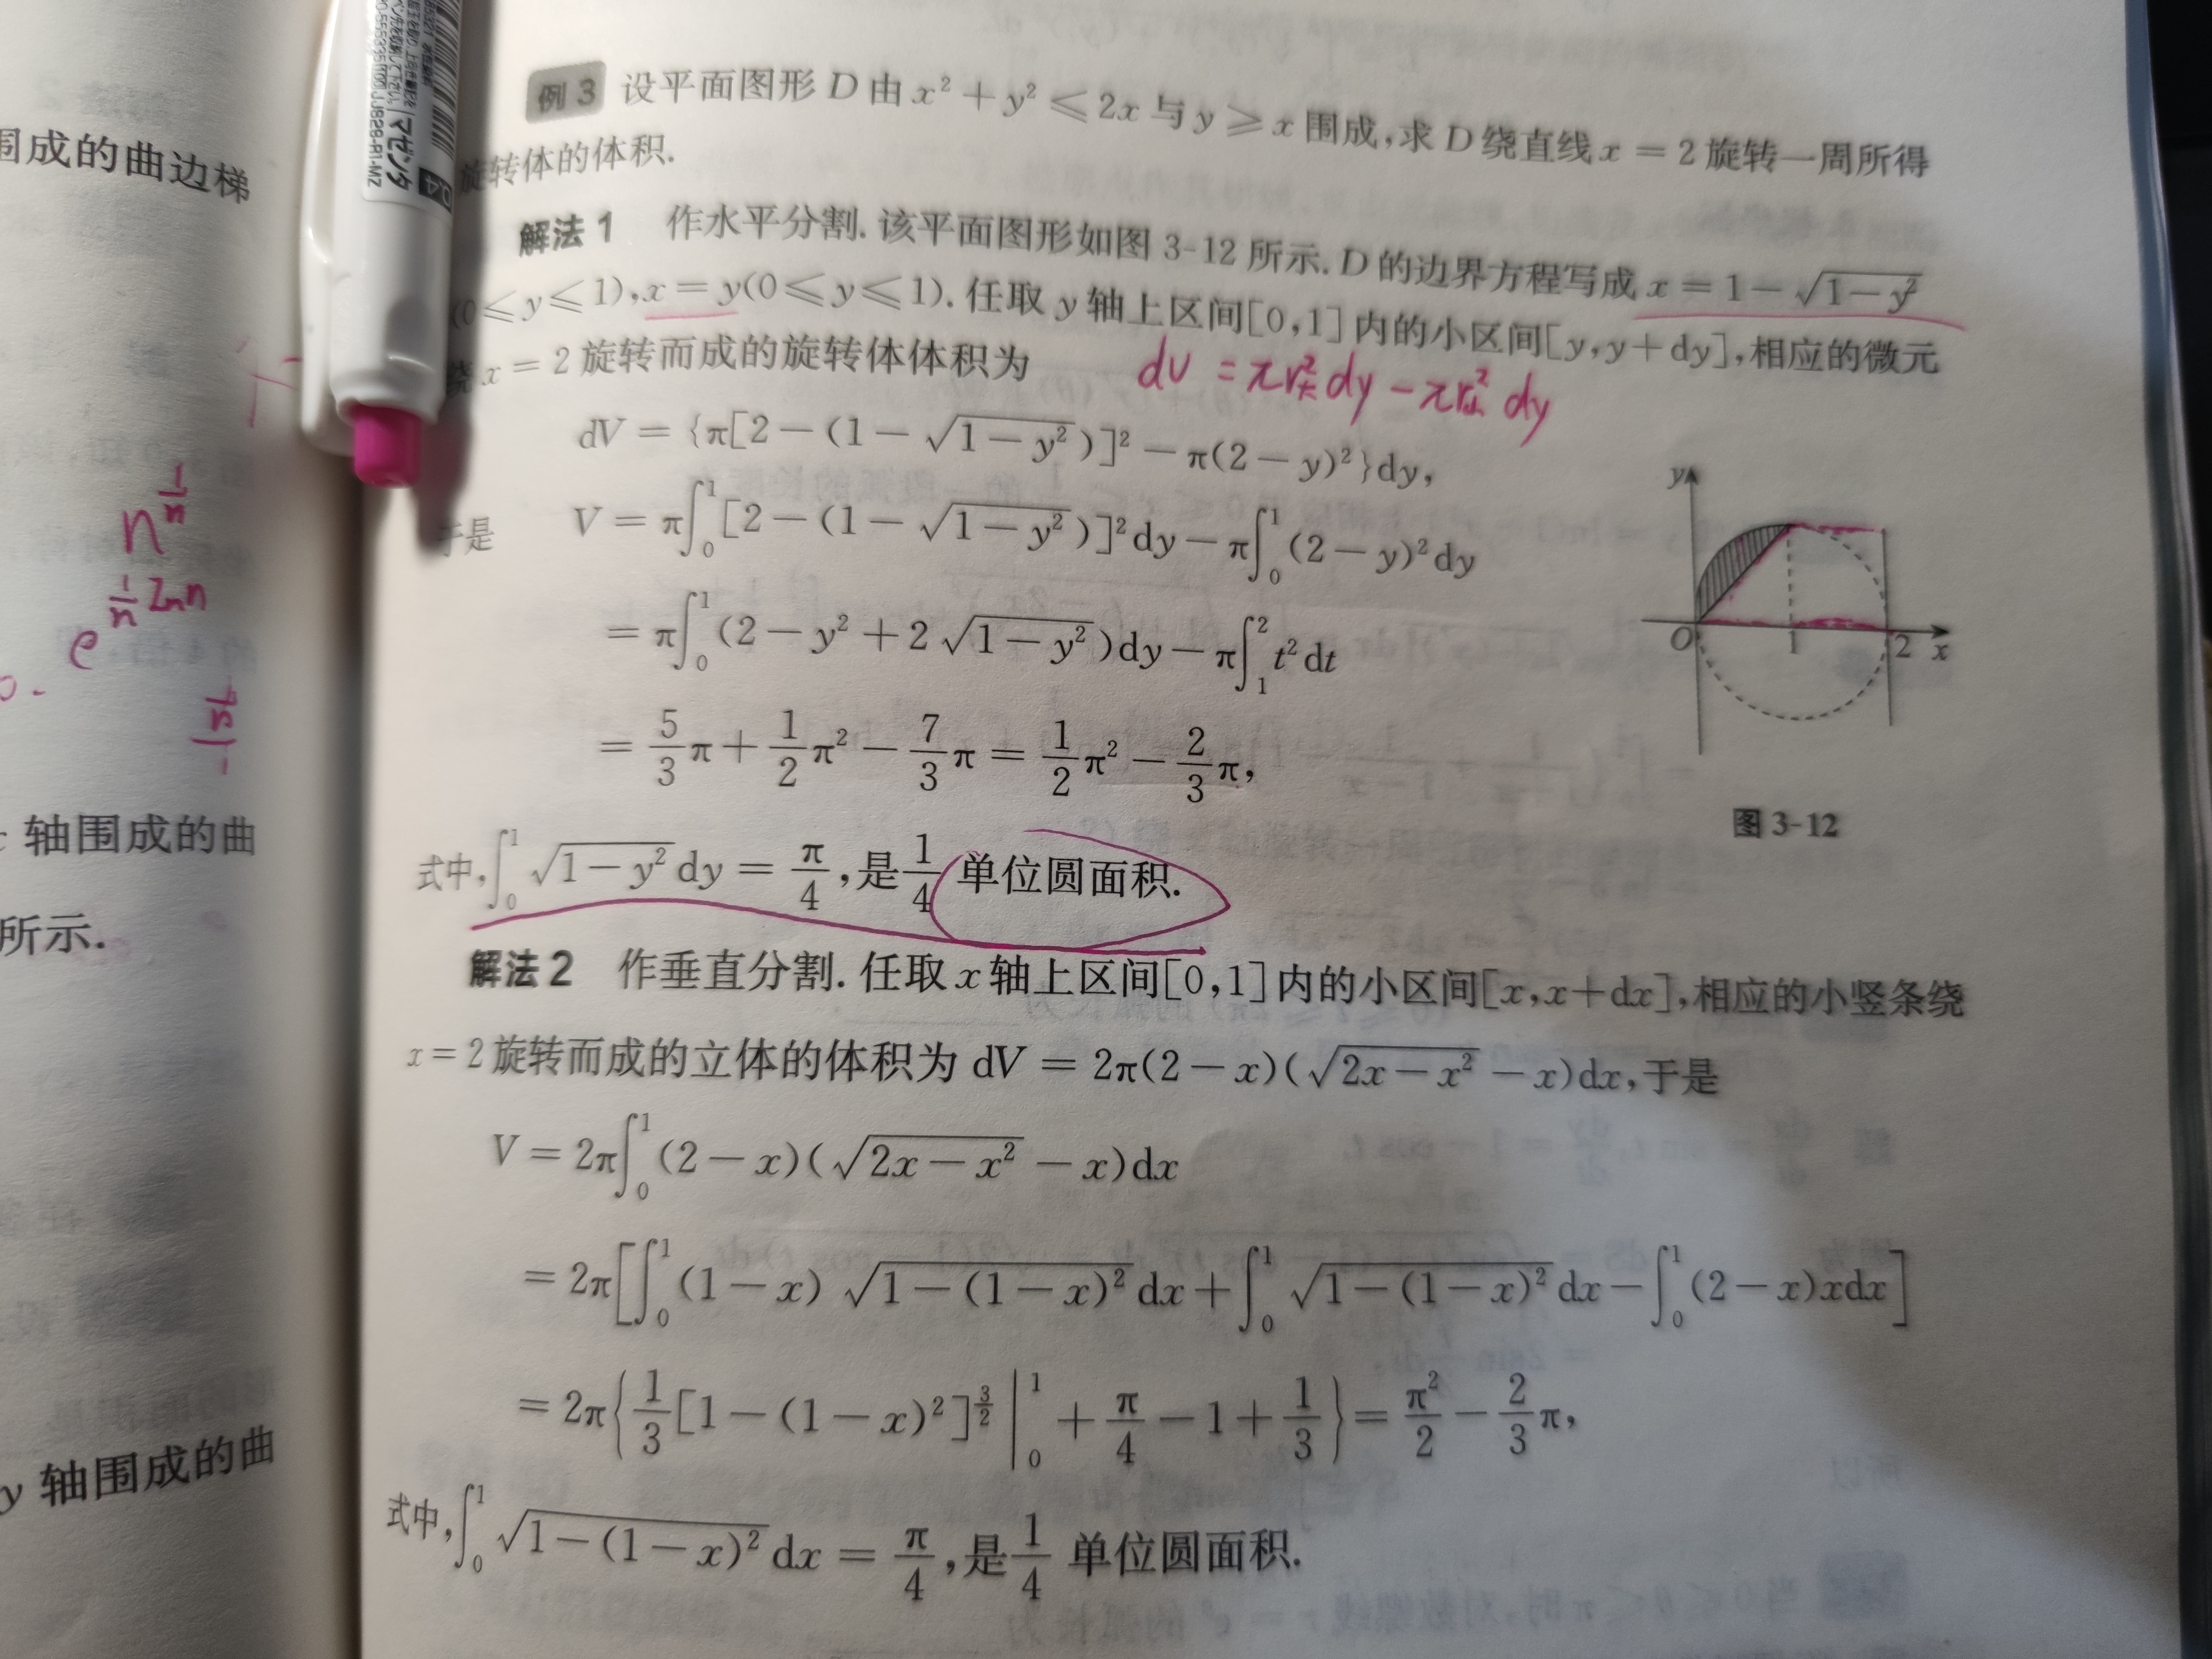 围成的曲边梯
n^{1/n}
e^{\frac{1}{n} ln n}
轴围成的曲
所示.
y 轴围成的曲
マゼンタ
0.4
例 3 设平面图形 D 由 x² + y² ⩽ 2x 与 y ⩾ x 围成,求 D 绕直线 x = 2 旋转一周所得
旋转体的体积.
解法 1 作水平分割. 该平面图形如图 3-12 所示. D 的边界方程写成 x = 1 − √(1 − y²)
(0 ⩽ y ⩽ 1), x = y(0 ⩽ y ⩽ 1). 任取 y 轴上区间[0,1]内的小区间[y, y + dy],相应的微元
绕 x = 2 旋转而成的旋转体体积为
dv = πr大² dy − πr小² dy
dV = {π[2 − (1 − √(1 − y²))]² − π(2 − y)²}dy,
于是 V = π∫₀¹[2 − (1 − √(1 − y²))]²dy − π∫₀¹(2 − y)²dy
= π∫₀¹(2 − y² + 2√(1 − y²))dy − π∫₁² t²dt
= 5/3 π + 1/2 π² − 7/3 π = 1/2 π² − 2/3 π,
y
O 1 2 x
图 3-12
式中, ∫₀¹ √(1 − y²) dy = π/4, 是 1/4 单位圆面积.
解法 2 作垂直分割. 任取 x 轴上区间[0,1]内的小区间[x, x + dx],相应的小竖条绕
x = 2 旋转而成的立体的体积为 dV = 2π(2 − x)(√(2x − x²) − x)dx,于是
V = 2π∫₀¹(2 − x)(√(2x − x²) − x)dx
= 2π[∫₀¹(1 − x)√(1 − (1 − x)²)dx + ∫₀¹√(1 − (1 − x)²)dx − ∫₀¹(2 − x)xdx]
= 2π{1/3[1 − (1 − x)²]^{3/2}|₀¹ + π/4 − 1 + 1/3} = π²/2 − 2/3 π,
式中, ∫₀¹ √(1 − (1 − x)²) dx = π/4, 是 1/4 单位圆面积.